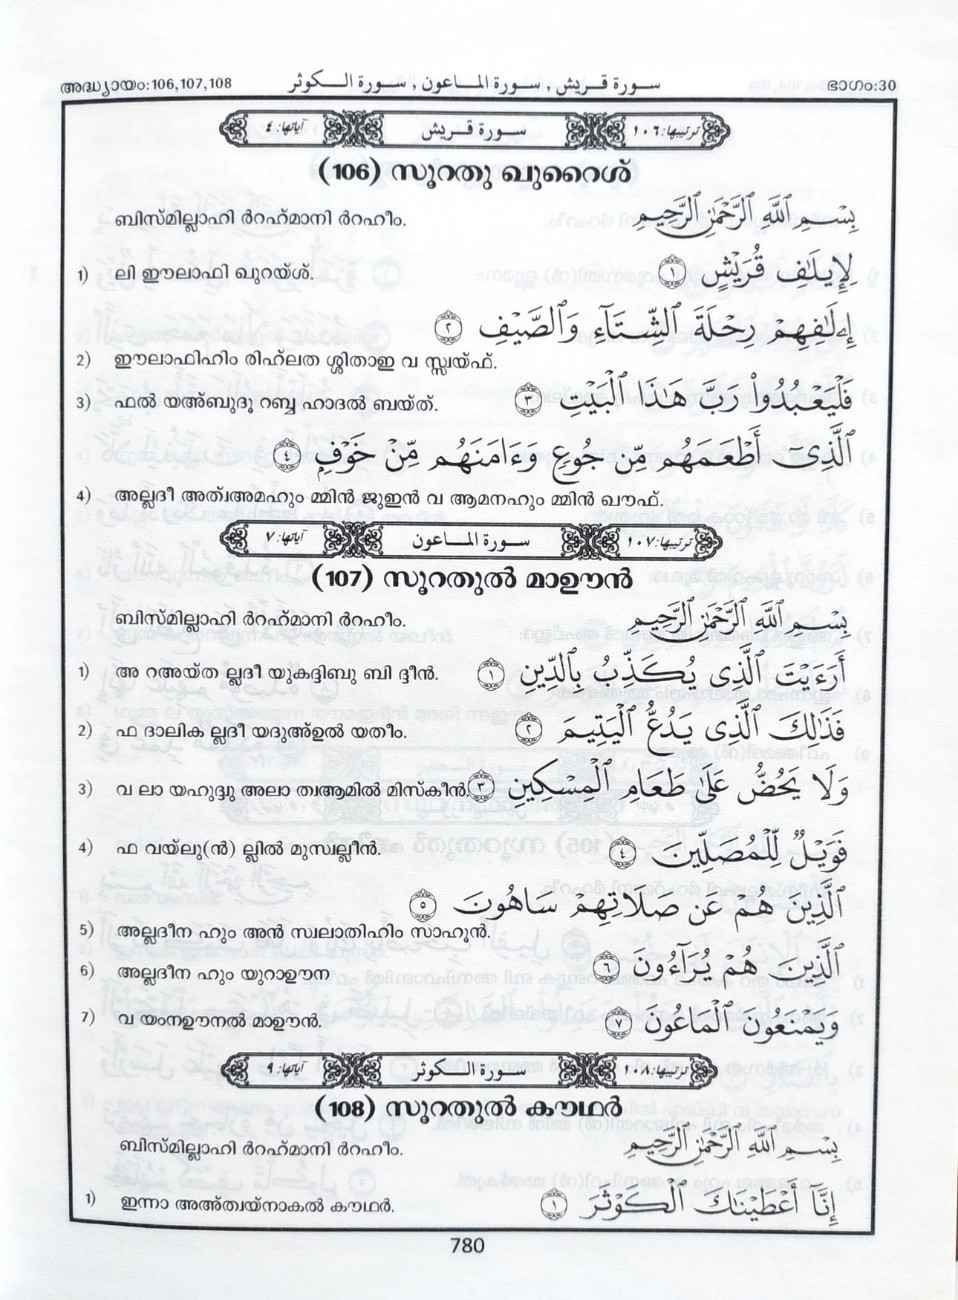 അദ്ധ്യായം:106,107,108 سورة قريش , سورة الماعون , سورة الكوثر ഭാഗം:30
ترتيبها:١٠٦ سورة قريش آياتها:٤
(106) സൂറതു ഖുറൈശ്
ബിസ്മില്ലാഹി ർറഹ്മാനി ർറഹീം. بِسْمِ ٱللَّهِ ٱلرَّحْمَٰنِ ٱلرَّحِيمِ
1) ലി ഈലാഫി ഖുറയ്ശ്. لِإِيلَٰفِ قُرَيْشٍ ١
إِۦلَٰفِهِمْ رِحْلَةَ ٱلشِّتَآءِ وَٱلصَّيْفِ ٢
2) ഈലാഫിഹിം രിഹ്‌ലത ശ്ശിതാഇ വ സ്സ്വയ്ഫ്.
3) ഫൽ യഅ്ബുദൂ റബ്ബ ഹാദൽ ബയ്ത്. فَلْيَعْبُدُوا۟ رَبَّ هَٰذَا ٱلْبَيْتِ ٣
ٱلَّذِىٓ أَطْعَمَهُم مِّن جُوعٍ وَءَامَنَهُم مِّنْ خَوْفٍۭ ٤
4) അല്ലദീ അത്വ്അമഹും മ്മിൻ ജുഇൻ വ ആമനഹും മ്മിൻ ഖൗഫ്.
ترتيبها:١٠٧ سورة الماعون آياتها:٧
(107) സൂറതുൽ മാഊൻ
ബിസ്മില്ലാഹി ർറഹ്മാനി ർറഹീം. بِسْمِ ٱللَّهِ ٱلرَّحْمَٰنِ ٱلرَّحِيمِ
1) അ റഅയ്ത ല്ലദീ യുകദ്ദിബു ബി ദ്ദീൻ. أَرَءَيْتَ ٱلَّذِى يُكَذِّبُ بِٱلدِّينِ ١
2) ഫ ദാലിക ല്ലദീ യദുഅ്ഉൽ യതീം. فَذَٰلِكَ ٱلَّذِى يَدُعُّ ٱلْيَتِيمَ ٢
3) വ ലാ യഹുദ്ദു അലാ ത്വആമിൽ മിസ്കീൻ. وَلَا يَحُضُّ عَلَىٰ طَعَامِ ٱلْمِسْكِينِ ٣
4) ഫ വയ്ലു(ൻ) ല്ലിൽ മുസ്വല്ലീൻ. فَوَيْلٌ لِّلْمُصَلِّينَ ٤
ٱلَّذِينَ هُمْ عَن صَلَاتِهِمْ سَاهُونَ ٥
5) അല്ലദീന ഹും അൻ സ്വലാതിഹിം സാഹൂൻ.
ٱلَّذِينَ هُمْ يُرَآءُونَ ٦
6) അല്ലദീന ഹും യുറാഊന
7) വ യംനഊനൽ മാഊൻ. وَيَمْنَعُونَ ٱلْمَاعُونَ ٧
ترتيبها:١٠٨ سورة الكوثر آياتها:
(108) സൂറതുൽ കൗഥർ
ബിസ്മില്ലാഹി ർറഹ്മാനി ർറഹീം. بِسْمِ ٱللَّهِ ٱلرَّحْمَٰنِ ٱلرَّحِيمِ
1) ഇന്നാ അഅ്ത്വയ്നാകൽ കൗഥർ. إِنَّآ أَعْطَيْنَٰكَ ٱلْكَوْثَرَ ١
780